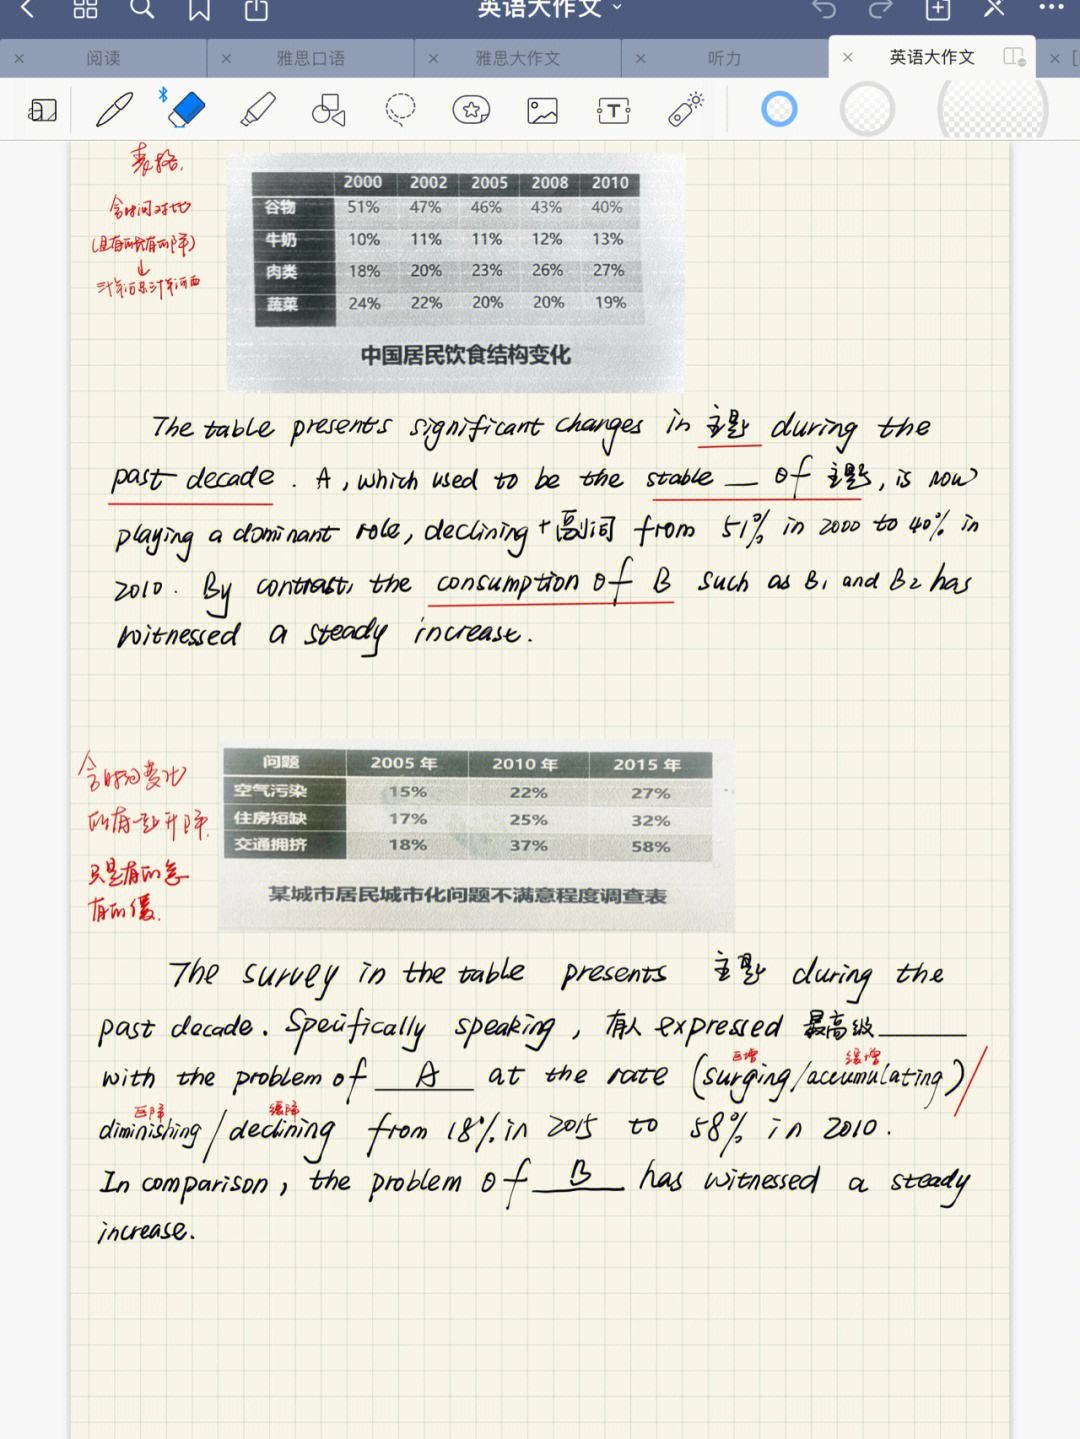 英语大作文
阅读
雅思口语
雅思大作文
听力
英语大作文
表格.
含时间对比
三十年河东三十年河西
2000 2002 2005 2008 2010
谷物 51% 47% 46% 43% 40%
牛奶 10% 11% 11% 12% 13%
肉类 18% 20% 23% 26% 27%
蔬菜 24% 22% 20% 20% 19%
中国居民饮食结构变化
The table presents significant changes in 主题 during the
past decade. A, which used to be the stable __ of 主题, is now
playing a dominant role, declining + 副词 from 51% in 2000 to 40% in
2010. By contrast, the consumption of B such as B1 and B2 has
witnessed a steady increase.
含时间变化
所有一起升降.
只是有的急
有的缓.
问题 2005 年 2010 年 2015 年
空气污染 15% 22% 27%
住房短缺 17% 25% 32%
交通拥挤 18% 37% 58%
某城市居民城市化问题不满意程度调查表
The survey in the table presents 主题 during the
past decade. Specifically speaking, 有人 expressed 最高级______
with the problem of __A__ at the rate (surging/accumulating)/
急增 缓增
急降 缓降
diminishing/declining from 18% in 2015 to 58% in 2010.
In comparison, the problem of __B__ has witnessed a steady
increase.